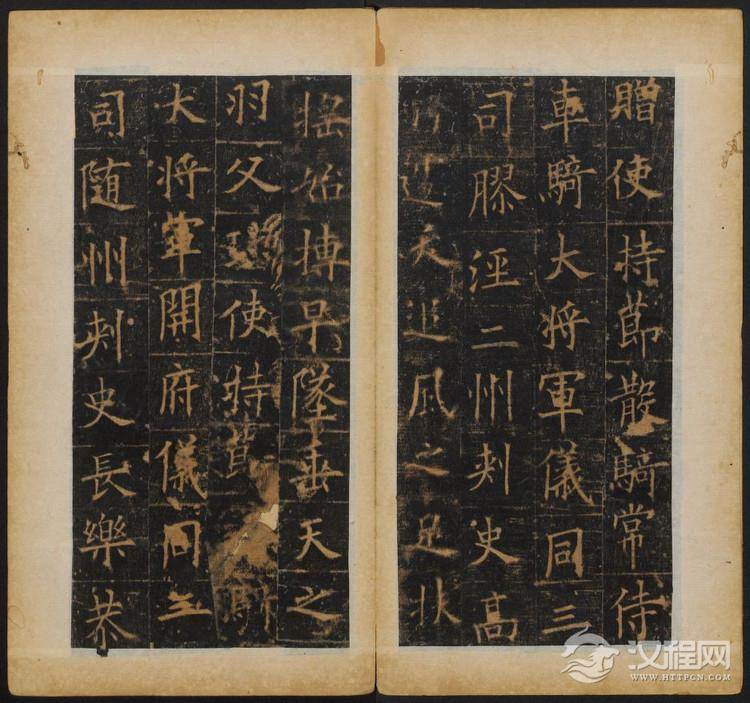 贈使持節散騎常侍
車騎大將軍儀同三
司膠涇二州刾史高
追風之足扶
搖始摶早墜垂天之
羽父璠使持節
大將軍開府儀同三
司随州刾史長樂恭
汉程网
WWW.HTTPCN.COM